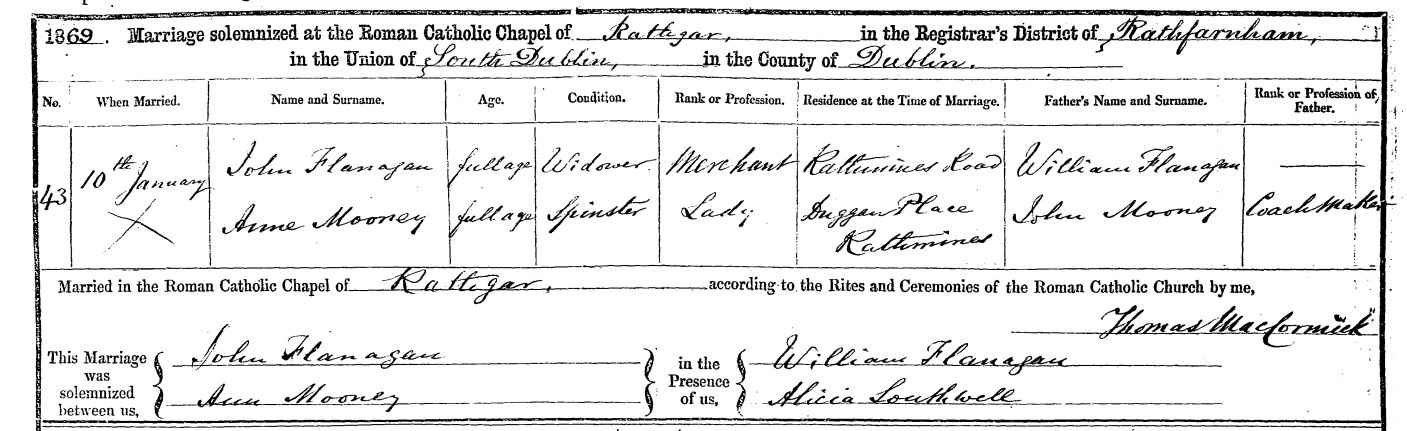 1869. Marriage solemnized at the Roman Catholic Chapel of Rathgar, in the Registrar's District of Rathfarnham,
in the Union of South Dublin, in the County of Dublin.
No. When Married. Name and Surname. Age. Condition. Rank or Profession. Residence at the Time of Marriage. Father's Name and Surname. Rank or Profession of Father.
43 10th January John Flanagan full age Widower Merchant Rathmines Road William Flanagan
Anne Mooney full age Spinster Lady Duggan Place Rathmines John Mooney Coach Maker
Married in the Roman Catholic Chapel of Rathgar, according to the Rites and Ceremonies of the Roman Catholic Church by me,
Thomas MacCormick
This Marriage was solemnized between us, John Flanagan in the Presence of us, William Flanagan
Ann Mooney Alicia Southwell